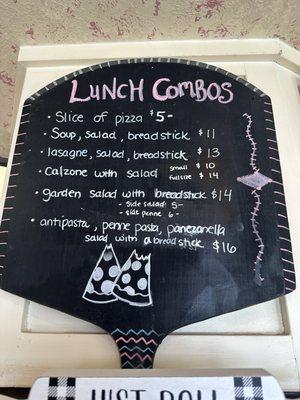 LUNCH COMBOS
• Slice of pizza $5-
• Soup, salad, breadstick $11
• lasagne, salad, breadstick $13
• Calzone with salad small $10
full size $14
• garden salad with breadstick $14
- side salad 5-
- side penne 6-
• antipasta, penne pasta, panezanella
salad with a breadstick $16